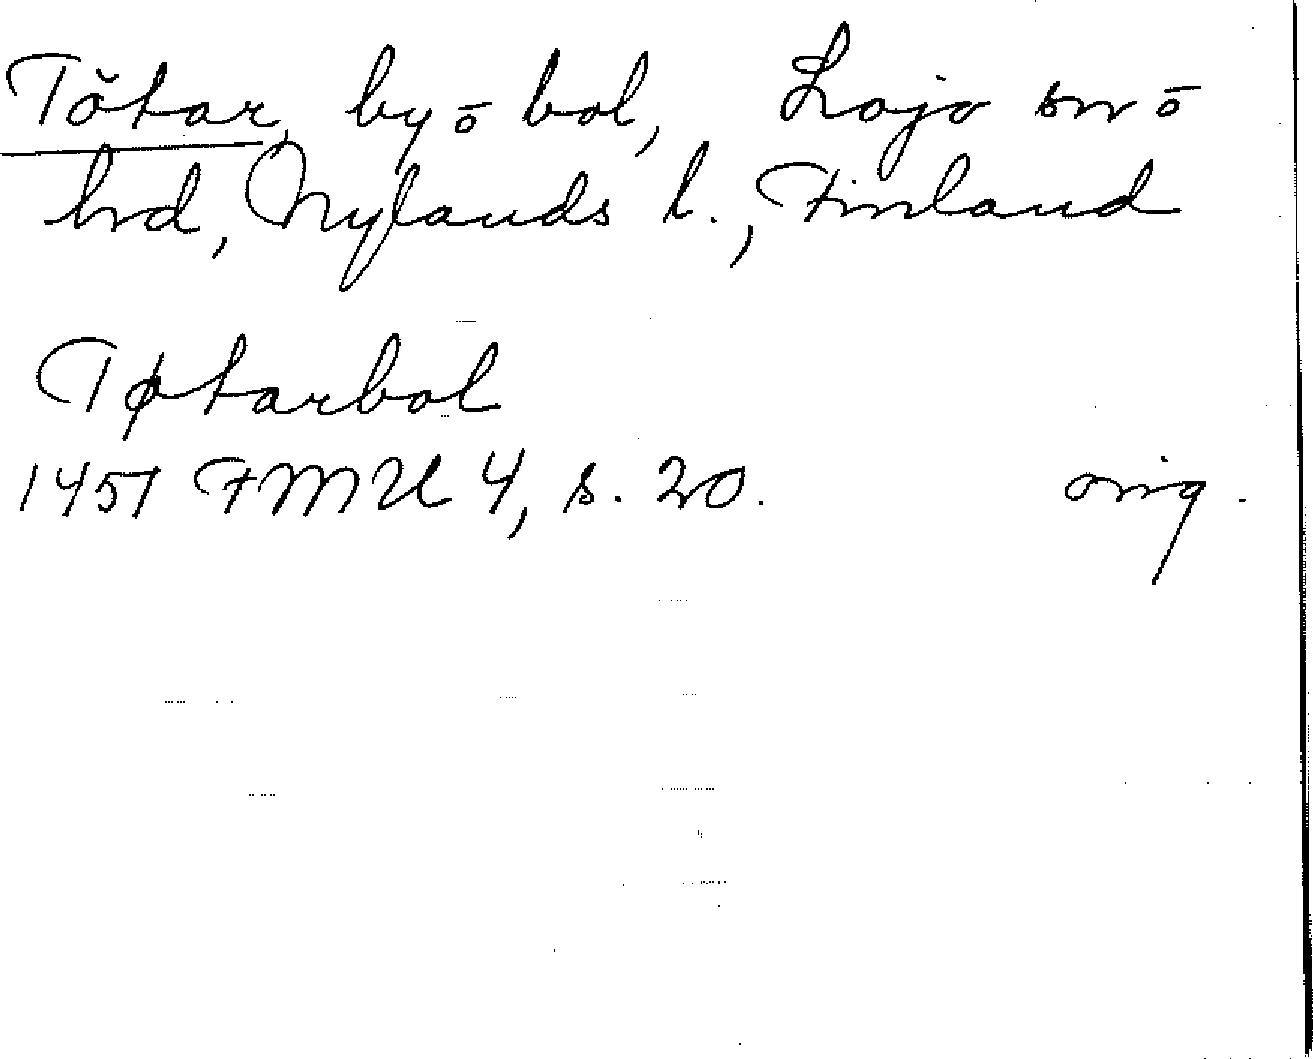 Tötar, by ō bol, Lojo sn ō
hrd, Nylands l., Finland
Tøtarbol
1451 FMU 4, s. 20. orig.